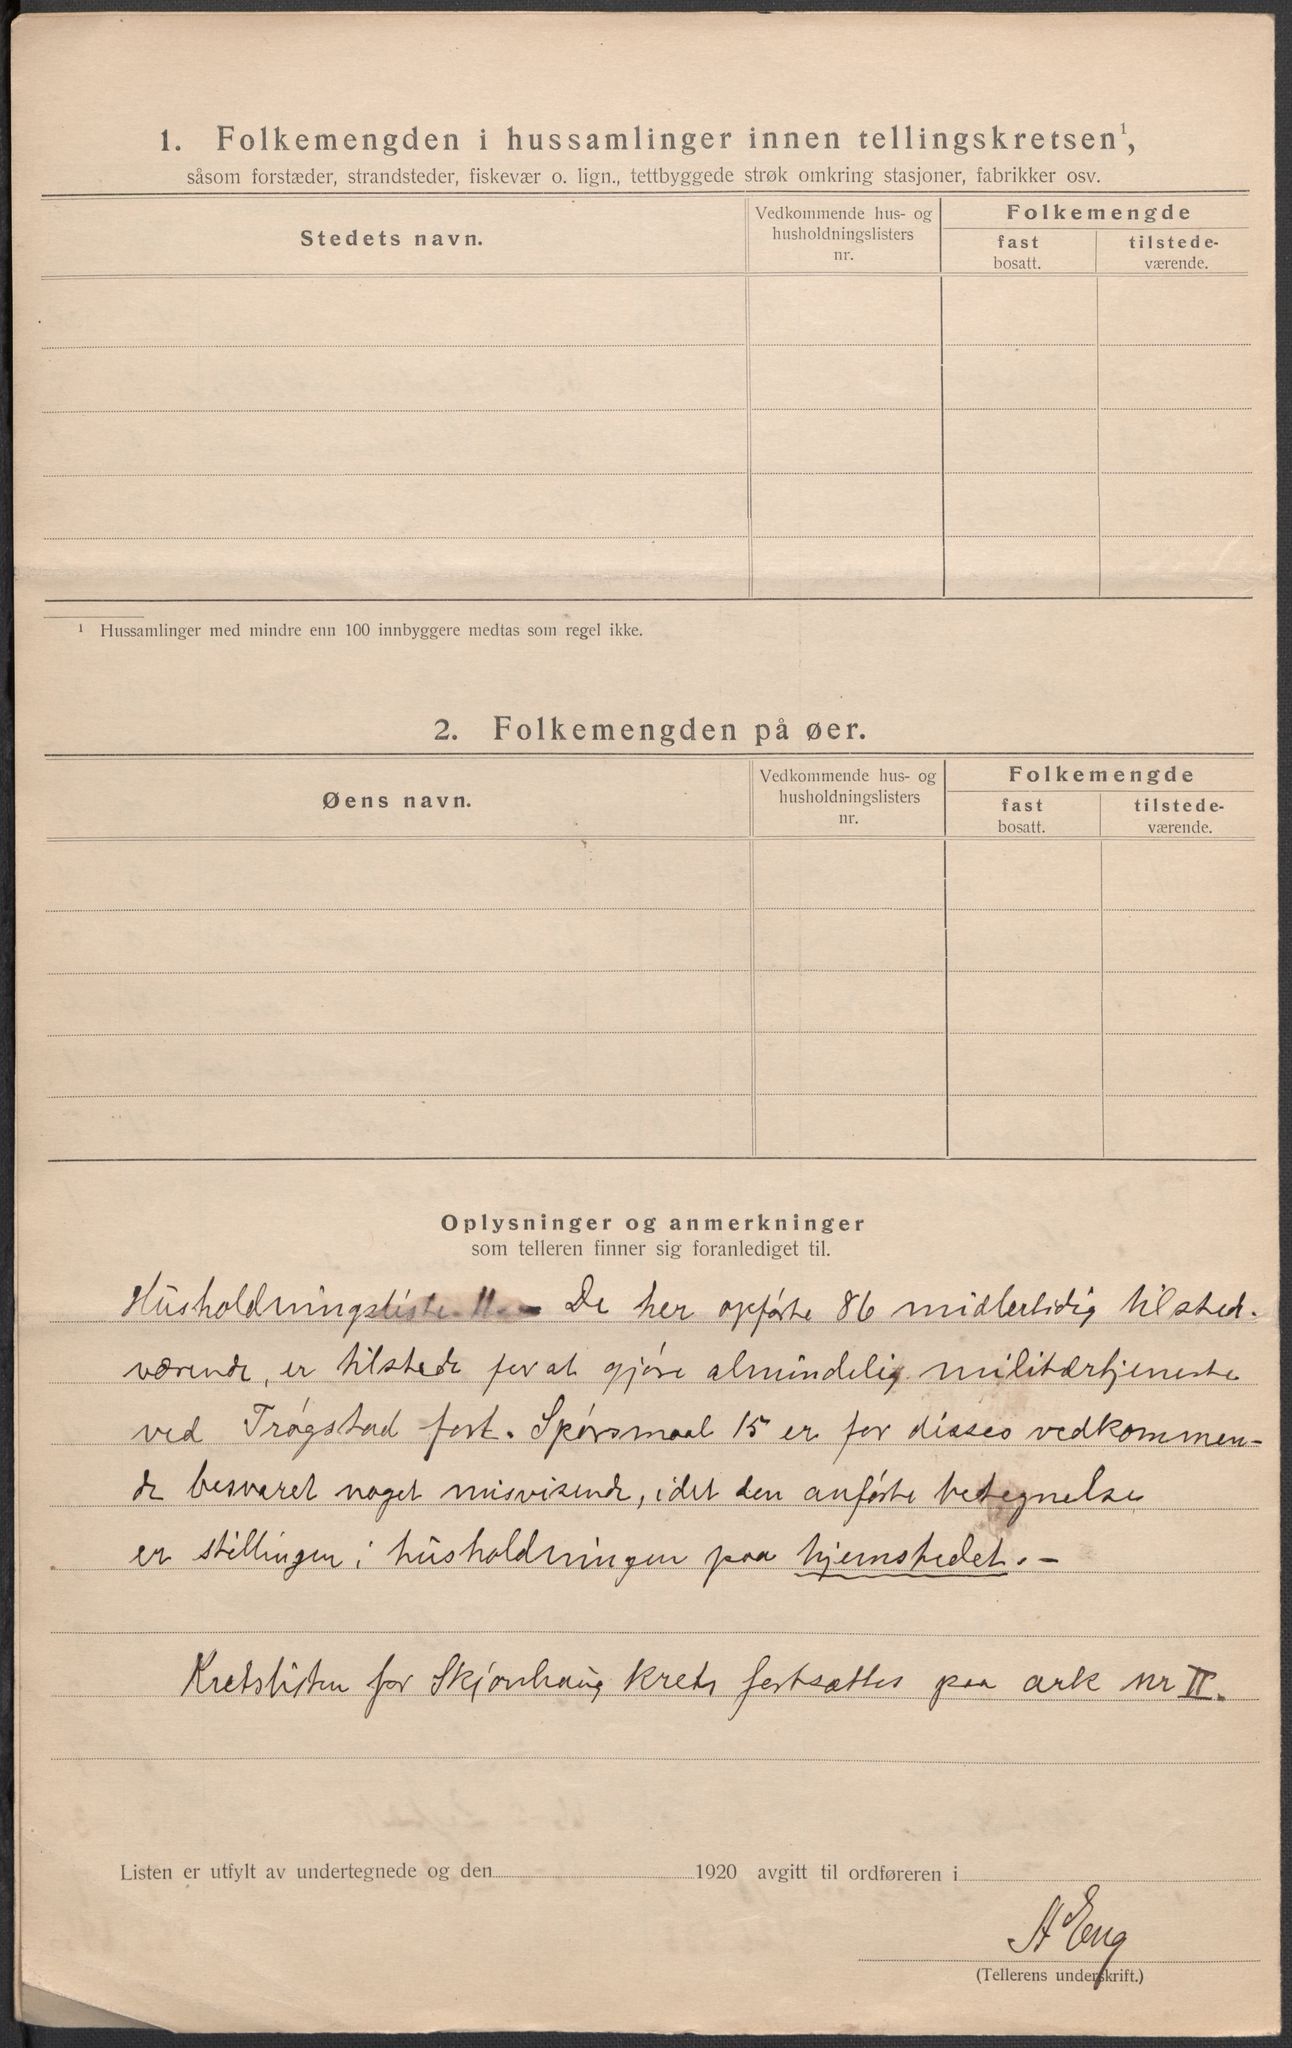 1. Folkemengden i hussamlinger innen tellingskretsen¹,
såsom forstæder, strandsteder, fiskevær o. lign., tettbyggede strøk omkring stasjoner, fabrikker osv.
Stedets navn.
Vedkommende hus- og
husholdningslisters
nr.
Folkemengde
fast
bosatt.
tilstede-
værende.
¹ Hussamlinger med mindre enn 100 innbyggere medtas som regel ikke.
2. Folkemengden på øer.
Øens navn.
Vedkommende hus- og
husholdningslisters
nr.
Folkemengde
fast
bosatt.
tilstede-
værende.
Oplysninger og anmerkninger
som telleren finner sig foranlediget til.
Husholdningsliste 11. – De her opførte 86 midlertidig tilsted-
værende, er tilstede for at gjøre almindelig militærtjeneste
ved Trøgstad fort. Spørsmaal 15 er for disses vedkommen-
de besvaret noget misvisende, idet den anførte betegnelse
er stillingen i husholdningen paa hjemstedet. –
Kretslisten for Skjønhaug krets fortsættes paa ark nr II.
Listen er utfylt av undertegnede og den 1920 avgitt til ordføreren i
A Eng
(Tellerens underskrift.)